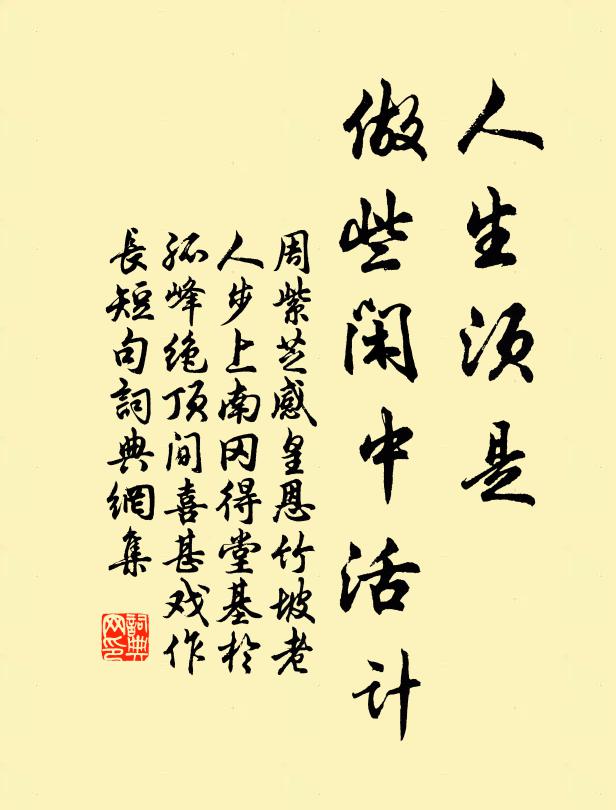 人生须是
做些闲中活计
周紫芝感皇恩竹坡老
人步上南冈得堂基於
孤峰绝顶间喜甚戏作
長短句詞典網集
詞典
网印